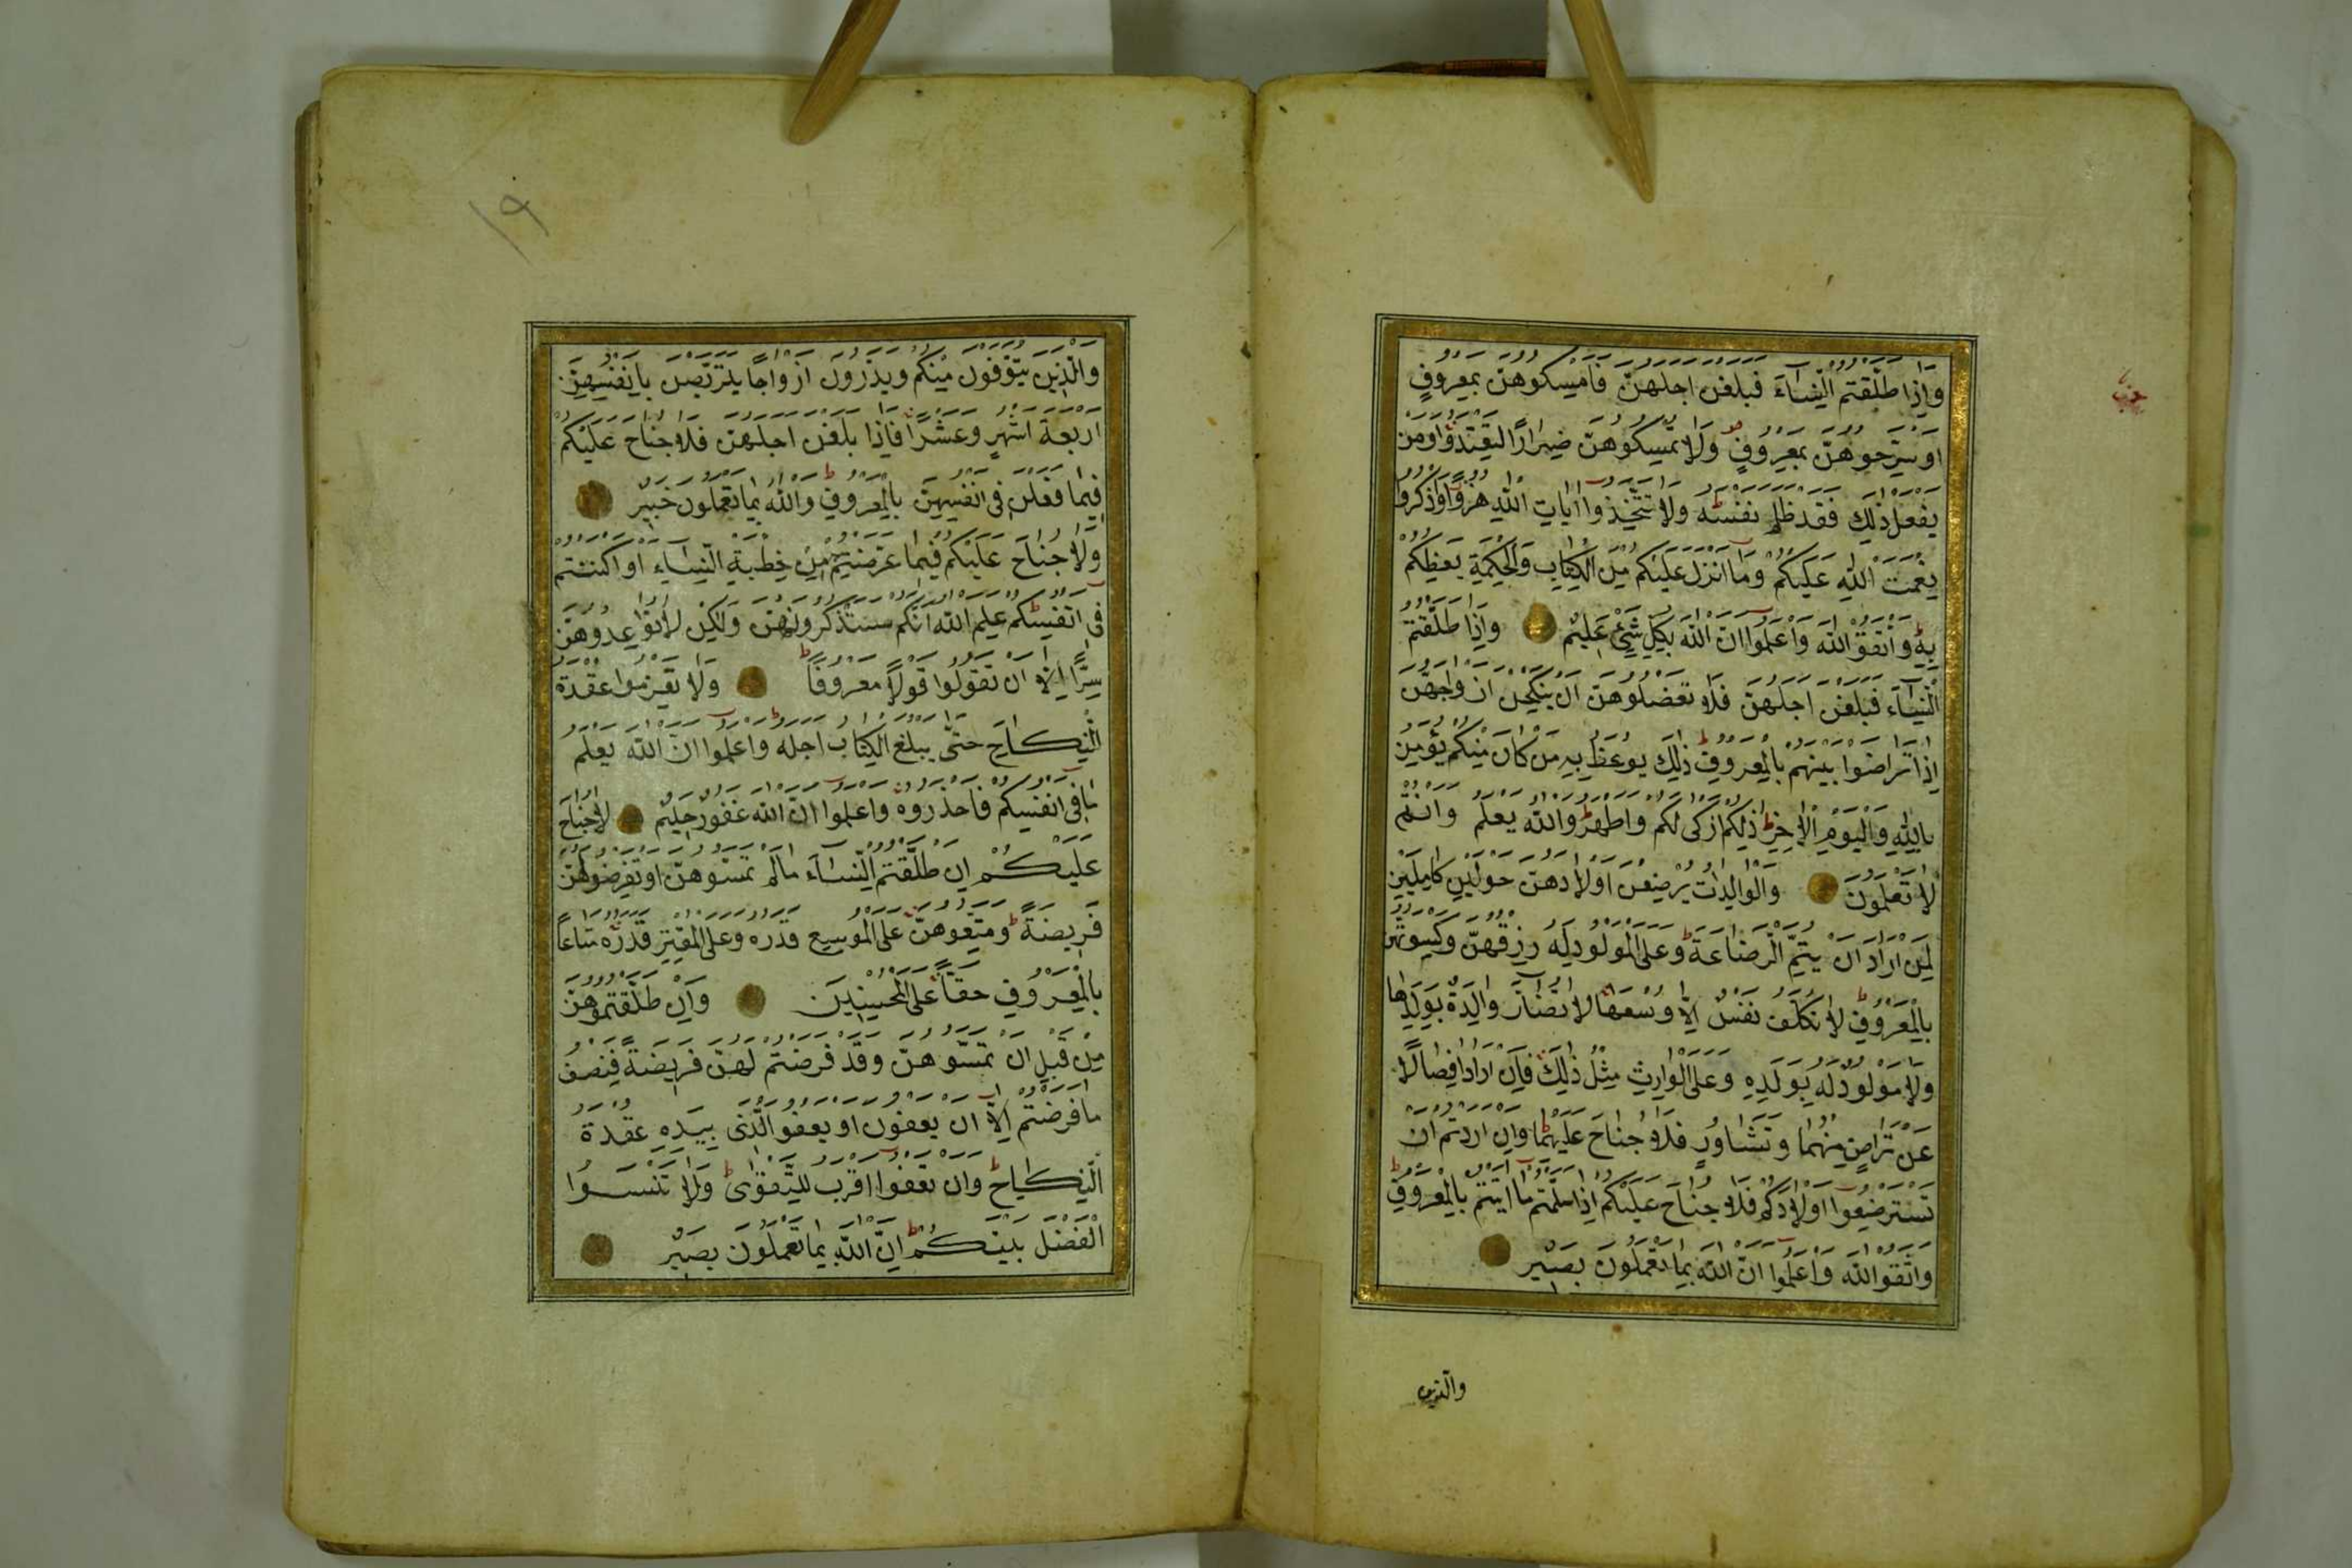 وَاِذَا طَلَّقْتُمُ النِّسَٓاءَ فَبَلَغْنَ اَجَلَهُنَّ فَاَمْسِكُوهُنَّ بِمَعْرُوفٍ
اَوْ سَرِّحُوهُنَّ بِمَعْرُوفٍ وَلَا تُمْسِكُوهُنَّ ضِرَارًا لِتَعْتَدُوا وَمَنْ
يَفْعَلْ ذٰلِكَ فَقَدْ ظَلَمَ نَفْسَهُ وَلَا تَتَّخِذُٓوا اٰيَاتِ اللّٰهِ هُزُوًا وَاذْكُرُوا
نِعْمَتَ اللّٰهِ عَلَيْكُمْ وَمَٓا اَنْزَلَ عَلَيْكُمْ مِنَ الْكِتَابِ وَالْحِكْمَةِ يَعِظُكُمْ
بِهِ وَاتَّقُوا اللّٰهَ وَاعْلَمُٓوا اَنَّ اللّٰهَ بِكُلِّ شَيْءٍ عَلِيمٌ وَاِذَا طَلَّقْتُمُ
النِّسَٓاءَ فَبَلَغْنَ اَجَلَهُنَّ فَلَا تَعْضُلُوهُنَّ اَنْ يَنْكِحْنَ اَزْوَاجَهُنَّ
اِذَا تَرَاضَوْا بَيْنَهُمْ بِالْمَعْرُوفِ ذٰلِكَ يُوعَظُ بِهِ مَنْ كَانَ مِنْكُمْ يُؤْمِنُ
بِاللّٰهِ وَالْيَوْمِ الْاٰخِرِ ذٰلِكُمْ اَزْكٰى لَكُمْ وَاَطْهَرُ وَاللّٰهُ يَعْلَمُ وَاَنْتُمْ
لَا تَعْلَمُونَ وَالْوَالِدَاتُ يُرْضِعْنَ اَوْلَادَهُنَّ حَوْلَيْنِ كَامِلَيْنِ
لِمَنْ اَرَادَ اَنْ يُتِمَّ الرَّضَاعَةَ وَعَلَى الْمَوْلُودِ لَهُ رِزْقُهُنَّ وَكِسْوَتُهُنَّ
بِالْمَعْرُوفِ لَا تُكَلَّفُ نَفْسٌ اِلَّا وُسْعَهَا لَا تُضَٓارَّ وَالِدَةٌ بِوَلَدِهَا
وَلَا مَوْلُودٌ لَهُ بِوَلَدِهِ وَعَلَى الْوَارِثِ مِثْلُ ذٰلِكَ فَاِنْ اَرَادَا فِصَالًا
عَنْ تَرَاضٍ مِنْهُمَا وَتَشَاوُرٍ فَلَا جُنَاحَ عَلَيْهِمَا وَاِنْ اَرَدْتُمْ اَنْ
تَسْتَرْضِعُٓوا اَوْلَادَكُمْ فَلَا جُنَاحَ عَلَيْكُمْ اِذَا سَلَّمْتُمْ مَٓا اٰتَيْتُمْ بِالْمَعْرُوفِ
وَاتَّقُوا اللّٰهَ وَاعْلَمُٓوا اَنَّ اللّٰهَ بِمَا تَعْمَلُونَ بَصِيرٌ
والذين
١٩
وَالَّذِينَ يُتَوَفَّوْنَ مِنْكُمْ وَيَذَرُونَ اَزْوَاجًا يَتَرَبَّصْنَ بِاَنْفُسِهِنَّ
اَرْبَعَةَ اَشْهُرٍ وَعَشْرًا فَاِذَا بَلَغْنَ اَجَلَهُنَّ فَلَا جُنَاحَ عَلَيْكُمْ
فِيمَا فَعَلْنَ فِٓى اَنْفُسِهِنَّ بِالْمَعْرُوفِ وَاللّٰهُ بِمَا تَعْمَلُونَ خَبِيرٌ
وَلَا جُنَاحَ عَلَيْكُمْ فِيمَا عَرَّضْتُمْ بِهِ مِنْ خِطْبَةِ النِّسَٓاءِ اَوْ اَكْنَنْتُمْ
فِٓى اَنْفُسِكُمْ عَلِمَ اللّٰهُ اَنَّكُمْ سَتَذْكُرُونَهُنَّ وَلٰكِنْ لَا تُوَاعِدُوهُنَّ
سِرًّا اِلَّٓا اَنْ تَقُولُوا قَوْلًا مَعْرُوفًا وَلَا تَعْزِمُوا عُقْدَةَ
النِّكَاحِ حَتّٰى يَبْلُغَ الْكِتَابُ اَجَلَهُ وَاعْلَمُٓوا اَنَّ اللّٰهَ يَعْلَمُ
مَا فِٓى اَنْفُسِكُمْ فَاحْذَرُوهُ وَاعْلَمُٓوا اَنَّ اللّٰهَ غَفُورٌ حَلِيمٌ لَا جُنَاحَ
عَلَيْكُمْ اِنْ طَلَّقْتُمُ النِّسَٓاءَ مَا لَمْ تَمَسُّوهُنَّ اَوْ تَفْرِضُوا لَهُنَّ
فَرِيضَةً وَمَتِّعُوهُنَّ عَلَى الْمُوسِعِ قَدَرُهُ وَعَلَى الْمُقْتِرِ قَدَرُهُ مَتَاعًا
بِالْمَعْرُوفِ حَقًّا عَلَى الْمُحْسِنِينَ وَاِنْ طَلَّقْتُمُوهُنَّ
مِنْ قَبْلِ اَنْ تَمَسُّوهُنَّ وَقَدْ فَرَضْتُمْ لَهُنَّ فَرِيضَةً فَنِصْفُ
مَا فَرَضْتُمْ اِلَّٓا اَنْ يَعْفُونَ اَوْ يَعْفُوَا الَّذِى بِيَدِهِ عُقْدَةُ
النِّكَاحِ وَاَنْ تَعْفُٓوا اَقْرَبُ لِلتَّقْوٰى وَلَا تَنْسَوُا
الْفَضْلَ بَيْنَكُمْ اِنَّ اللّٰهَ بِمَا تَعْمَلُونَ بَصِيرٌ